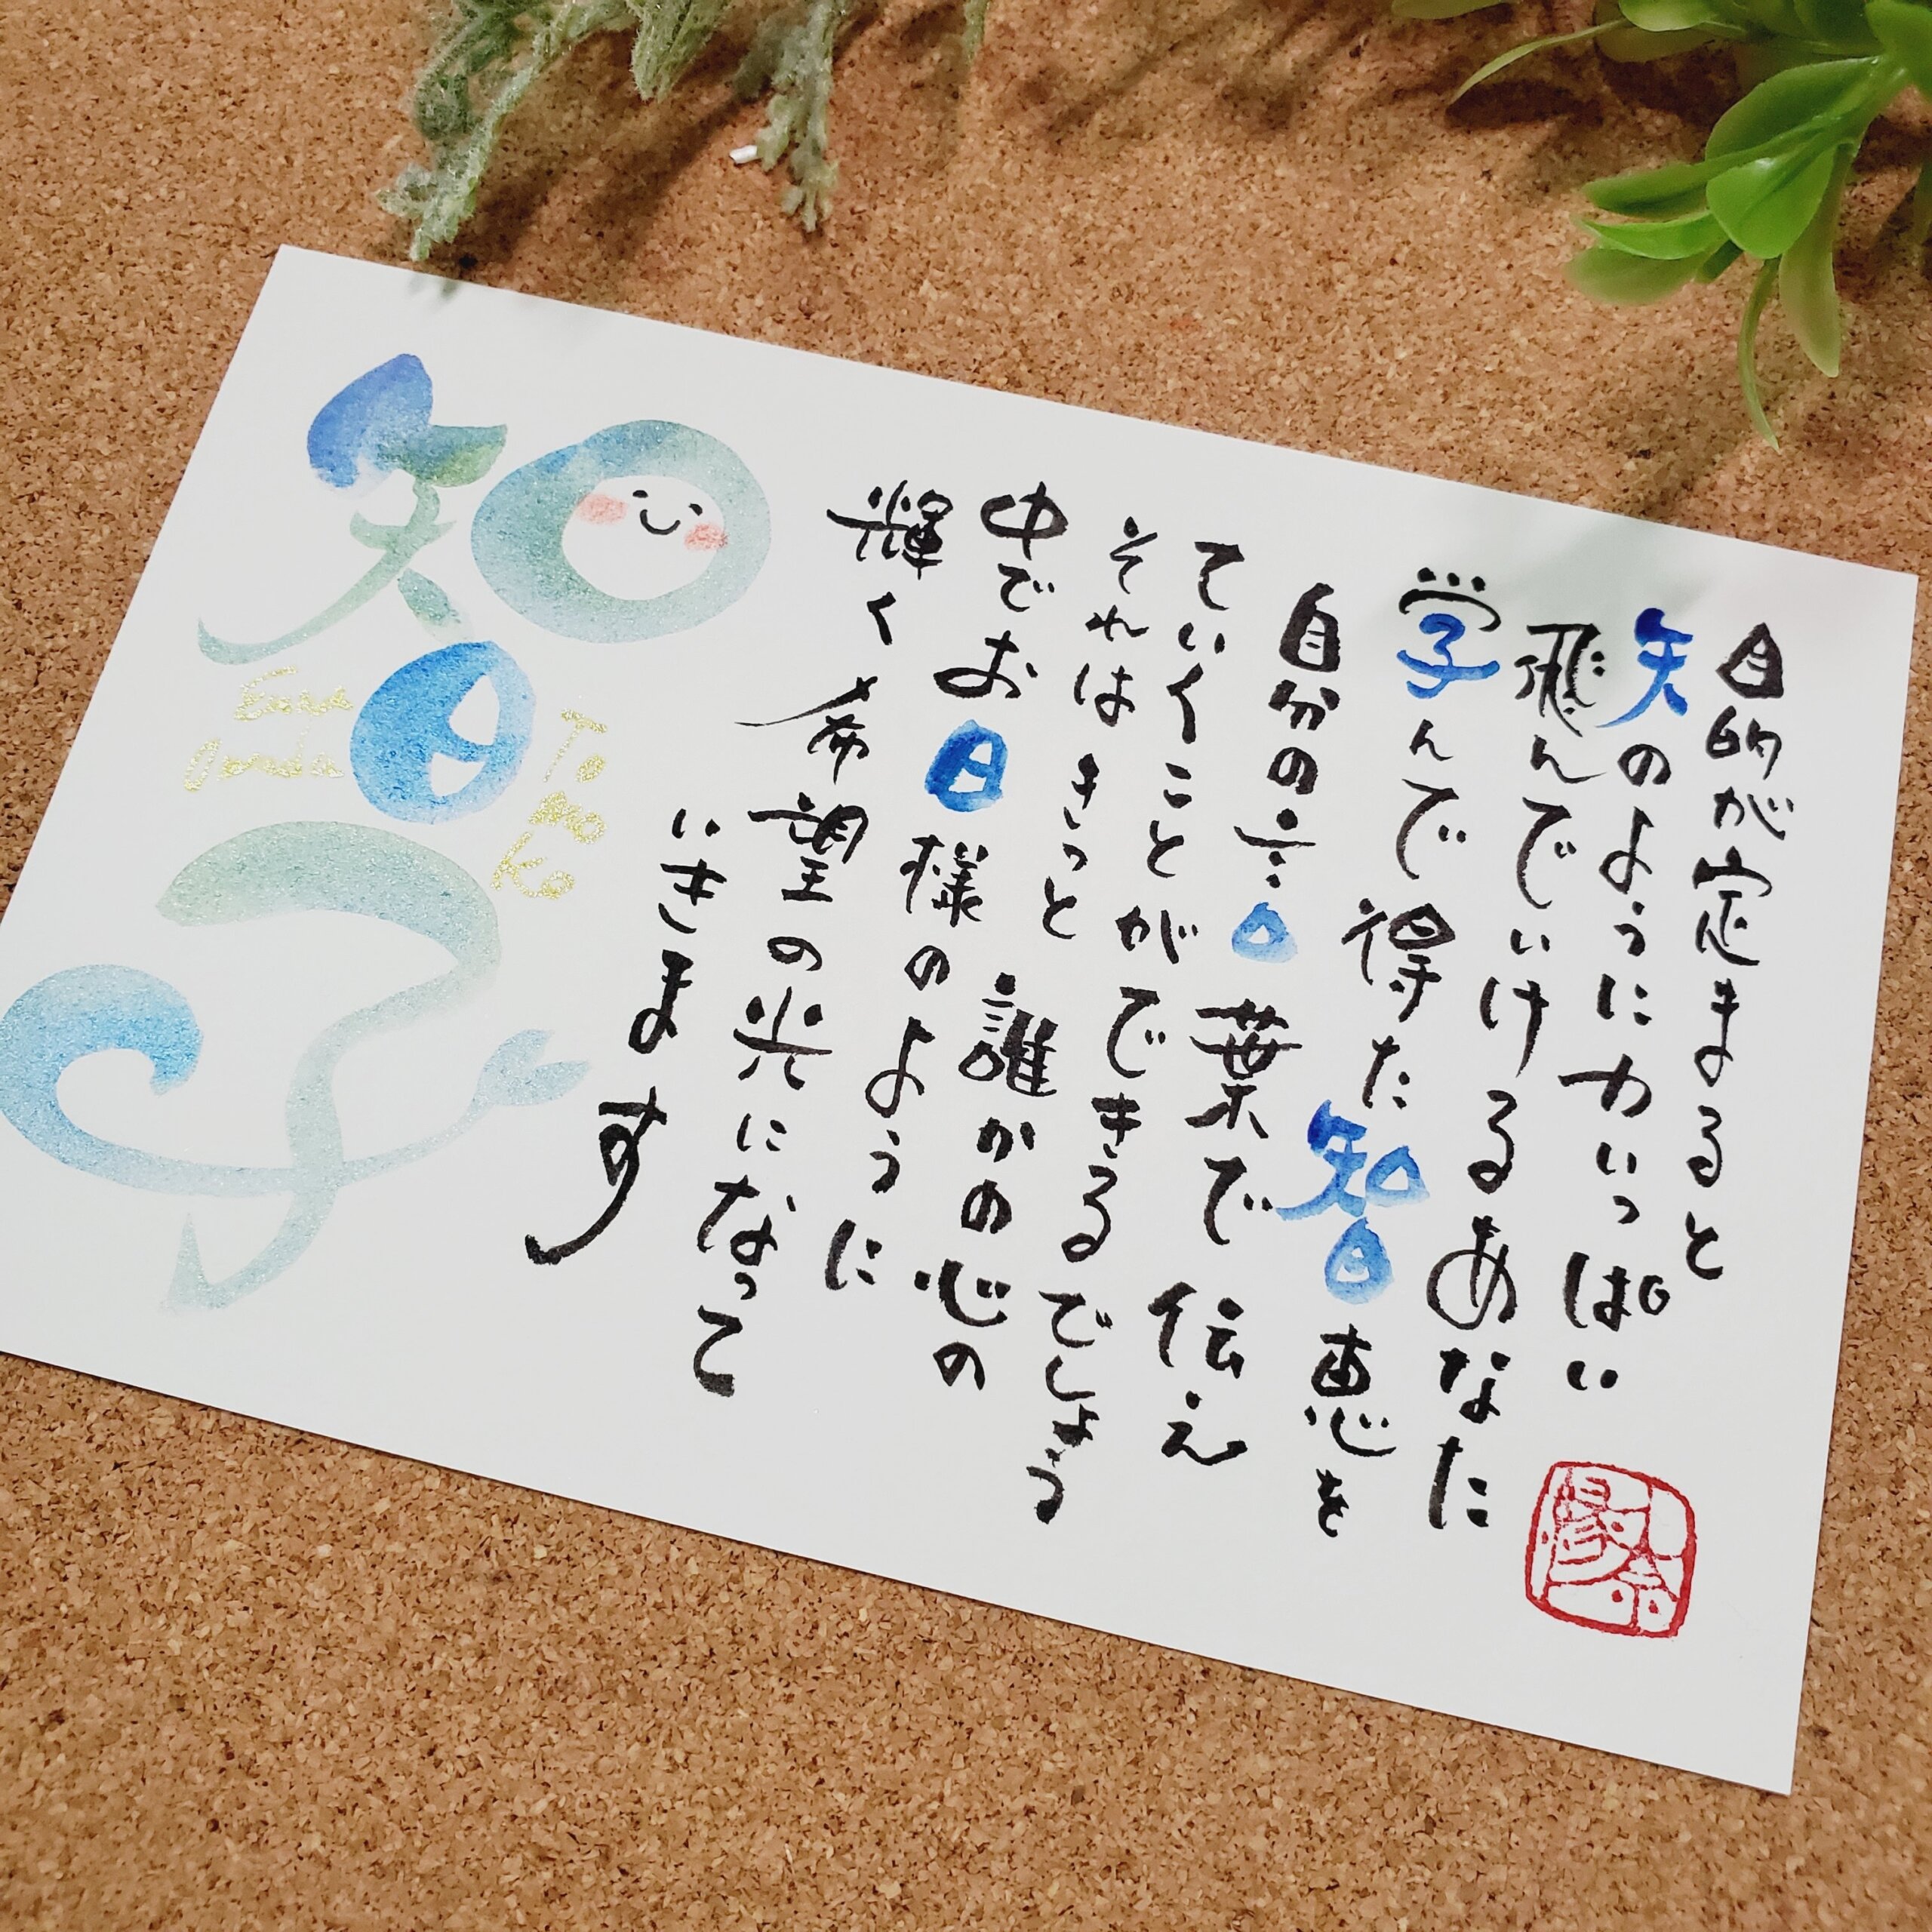 目的が定まると
矢のように力いっぱい
飛んでいけるあなた
学んで得た智恵を
自分の言葉で伝え
ていくことができるでしょう
それはきっと誰かの心の
中でお日様のように
輝く希望の光になって
いきます
智子
To
mo
ko